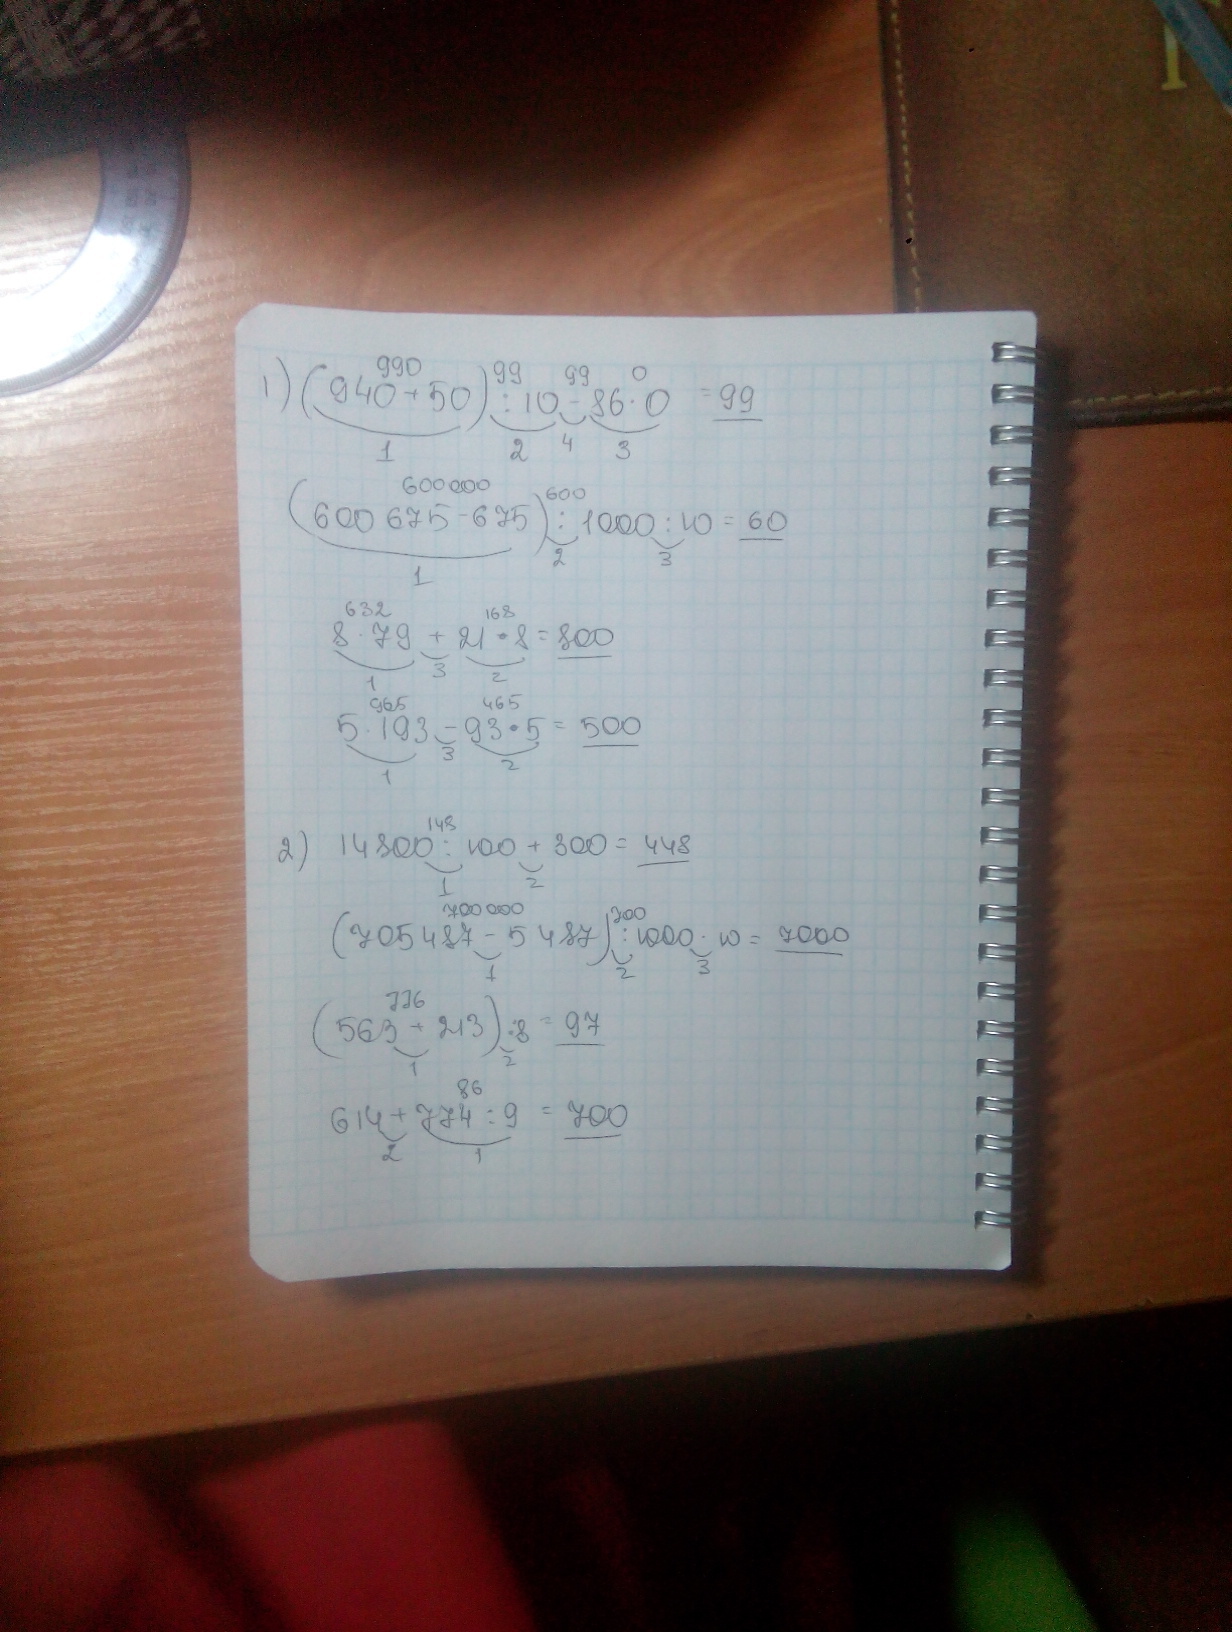 990 99 99 0
1) (940+50) : 10 - 86 · 0 = 99
1 2 4 3
600000 600
(600 675 - 675) : 1000 : 10 = 60
1 2 3
632 168
8 · 79 + 21 · 8 = 800
1 3 2
965 465
5 · 193 - 93 · 5 = 500
1 3 2
148
2) 14800 : 100 + 300 = 448
1 2
700 000 700
(705 487 - 5 487) : 1000 · 10 = 7000
1 2 3
776
(563 + 213) : 8 = 97
1 2
86
614 + 774 : 9 = 700
2 1